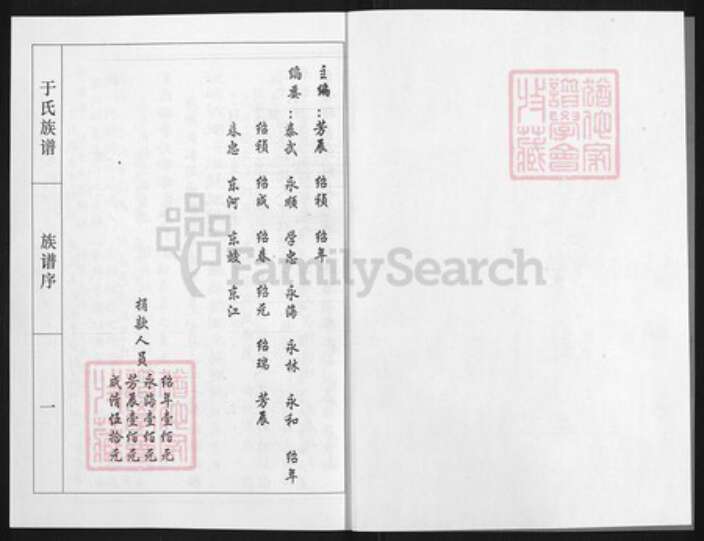 主编：芳展 绍祯 绍年
编委：泰武 永顺 学忠 永海 永林 永和 绍年
绍祯 绍成 绍春 绍元 绍瑞 芳展
春忠 东河 东波 东江
捐款人员
绍年壹佰元
永海壹佰元
芳展壹佰元
成清伍拾元
于氏族谱
族谱序
一
FamilySearch